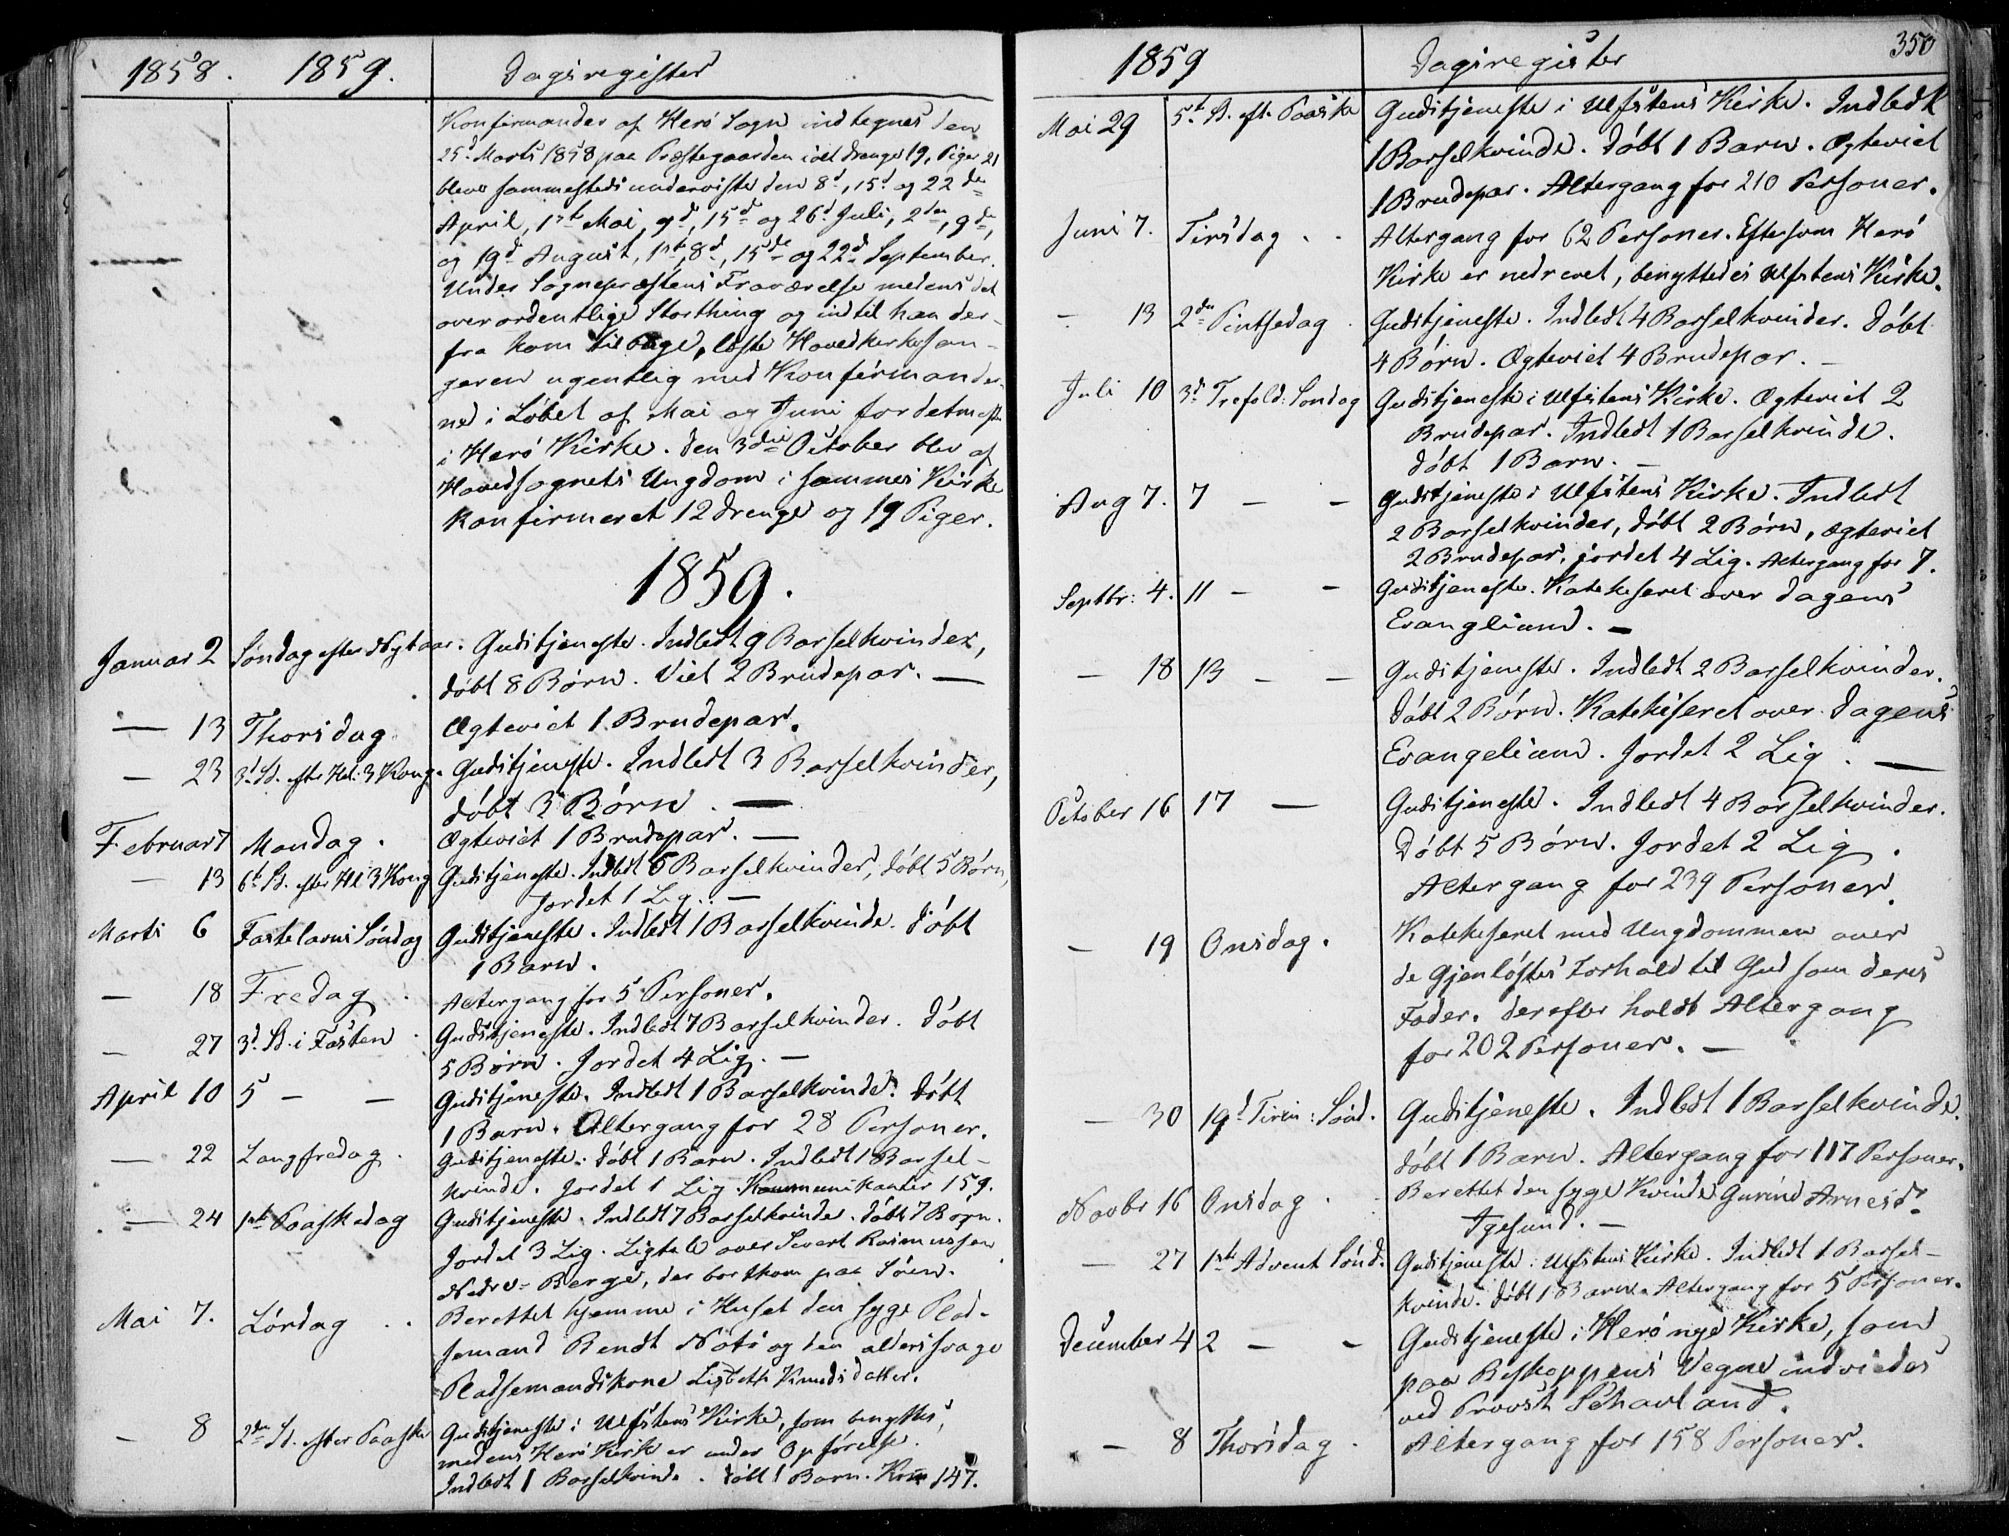 1858. 1859. Dagsregister
Konfirmander af Herö Sogn indtegnes den
25d Marts 1858 paa Præstegaarden i alt Drenge 19, Piger 21
bleve sammesteds underviste den 8d, 15d og 22de
April, 1ste Mai, 9d, 15d og 26d Juli, 2den, 9de,
og 19d August, 1ste, 8d, 15de og 22d September.
Under Sognepræstens Fraværelse medens det
overordentlige Storthing og indtil han der-
fra kom tilbage, læste Hovedkirkesan-
geren ugentlig med Konfirmander-
ne i Løbet af Mai og Juni for detmeste
i Herö Kirke. Den 3die October blev af
Hovedsognets Ungdom i sammes Kirke
konfirmeret 12 Drenge og 19 Piger.
1859.
Januar 2 Søndag efter Nytaar. Gudstjeneste. Indledt 9 Barselkvinder,
døbt 8 Børn. Viet 2 Brudepar. —
— 13 Thorsdag Ægteviet 1 Brudepar.
— 23 3d S. efter Hel: 3 Kong. Gudstjeneste. Indledt 3 Barselkvinder,
døbt 3 Børn. —
Februar 7 Mandag. Ægteviet 1 Brudepar. —
— 13 6t S. efter Hl 3 Kong Gudstjeneste. Indledt 6 Barselkvinder, døbt 5 Børn,
Jordet 1 Lig. —
Marts 6 Fastelavns Søndag Gudstjeneste. Indledt 1 Barselkvinde. Døbt
1 Barn.
— 18 Fredag. Altergang for 5 Personer.
— 27 3d S. i Fasten. Gudstjeneste. Indledt 7 Barselkvinder. Døbt
5 Børn. Jordet 4 Lig. —
April 10 5 — — Gudstjeneste. Indledt 1 Barselkvinde. Døbt
1 Barn. Altergang for 28 Personer.
— 22 Langfredag. Gudstjeneste. Døbt 1 Barn. Indledt 1 Barsel-
kvinde. Jordet 1 Lig. Kommunikanter 159.
— 24 1ste Paaskedag Gudstjeneste. Indledt 7 Barselkvinder. Døbt 7 Børn.
Jordet 3 Lig. Ligtale over Sivert Rasmussen
Nedre-Berge, der bortkom paa Søen.
Mai 7. Lørdag . . Berettet hjemme i Huset den syge Plad-
semand Bendt Nøtö og den alderssvage
Pladsemandskone Lisbeth Knudsdatter.
— 8 2den S. efter Paaske Gudstjeneste i Ulfstens Kirke, som benyttes,
medens Herö Kirke er under Opførelse.
Indledt 1 Barselkvinde. Døbt 1 Barn. Kom 147.
1859 Dagsregister 350
Mai 29 5te S. eft. Paaske Gudstjeneste i Ulfstens Kirke. Indledt
1 Barselkvinde. Døbt 1 Barn. Ægteviet
1 Brudepar. Altergang for 210 Personer.
Juni 7. Tirsdag . . Altergang for 62 Personer. Eftersom Herö
Kirke er nedrevet, benyttedes Ulfstens Kirke.
— 13 2den Pintsedag. Gudstjeneste. Indledt 4 Barselkvinder. Døbt
4 Børn. Ægteviet 4 Brudepar. —
Juli 10 3d Trefold: Søndag Gudstjeneste i Ulfstens Kirke. Ægteviet 2
Brudepar. Indledt 1 Barselkvinde.
Døbt 1 Barn. —
Aug 7. 7 — — Gudstjeneste i Ulfstens Kirke. Indledt
2 Barselkvinder, døbt 2 Børn, ægteviet
2 Brudepar, jordet 4 Lig. Altergang for 7.
Septbr: 4. 11 — — Gudstjeneste. Katekiseret over Dagens
Evangelium. —
— 18 13 — — Gudstjeneste. Indledt 2 Barselkvinder.
Døbt 2 Børn. Katekiseret over Dagens
Evangelium. Jordet 2 Lig. —
October 16 17 — Gudstjeneste. Indledt 4 Barselkvinder.
Døbt 5 Børn. Jordet 2 Lig.
Altergang for 239 Personer.
— 19 Onsdag. Katekiseret med Ungdommen over
de Gjenløstes Forhold til Gud som deres
Fader. Derefter holdt Altergang
for 202 Personer. —
— 30 19d Trin: Sønd. Gudstjeneste. Indledt 1 Barselkvinde.
Døbt 1 Barn. Altergang for 117 Personer.
Novbr 16 Onsdag. Berettet den syge Kvinde Gurine Arnesd.
Igesund. —
— 27 1ste Advent Sønd. Gudstjeneste i Ulfstens Kirke. Indledt 1 Barsel-
kvinde. Døbt 1 Barn. Altergang for 5 Personer.
December 4 2 — — Gudstjeneste i Herö nye Kirke, som
paa Biskoppens Vegne indviedes
ved Provst Schavland.
— 8 Thorsdag. Altergang for 158 Personer.